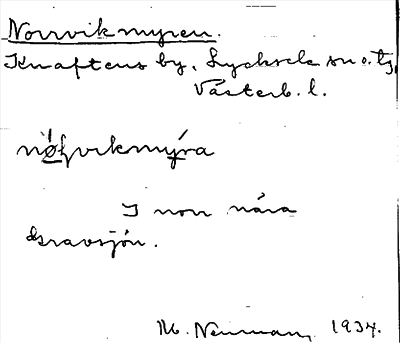 Norrvikmyren.
Knaftens by, Lycksele sn o. tg,
Västerb. l.
nø̀rvikmy̱ra
I norr nära
Gravsjön.
M. Neuman, 1934.